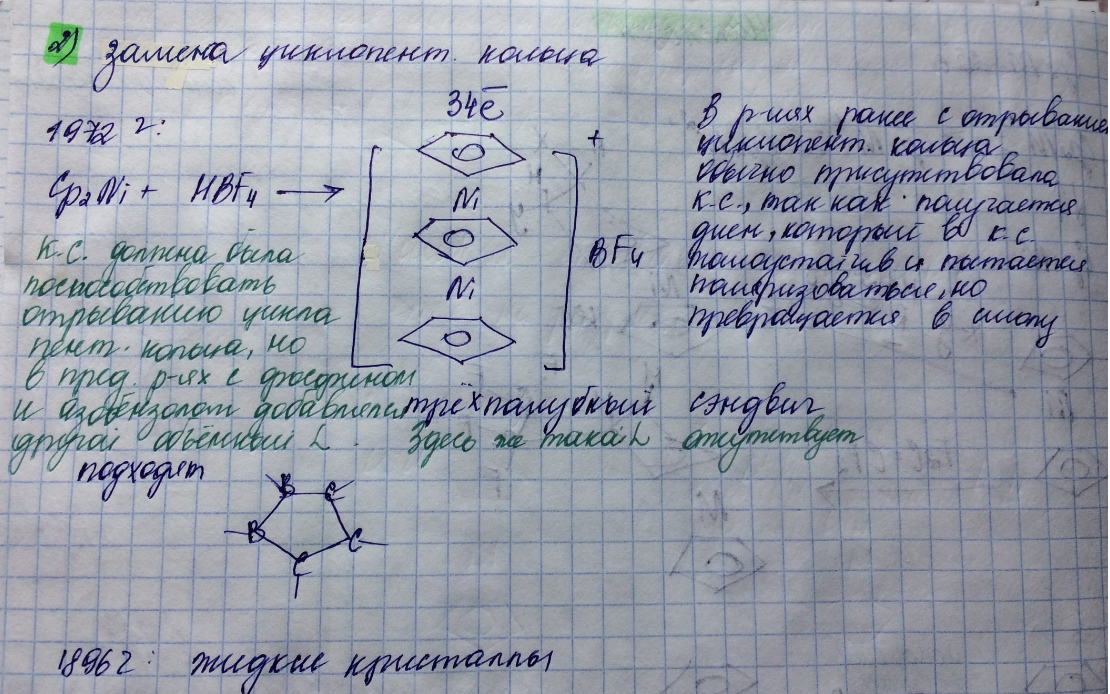 2) замена циклопент. кольца
1972 г:
Cp₂Ni + HBF₄ ⟶
34ē
Ni
Ni
+
BF₄
В р-иях ранее с отрыванием
циклопент. кольца
обычно присутствовала
к.с., так как получается
диен, который в к.с.
малоустойчив и пытается
полиризоваться, но
превращается в смолу
К.С. должна была
поспособствовать
отрыванию цикло
пент. кольца, но
в пред. р-иях с фосфином
и азобензолом добавлялся
другой объёмный L.
трёхпалубный сэндвич
Здесь же такой L отсутствует
подходят
B C
B C
C
1896 г: жидкие кристаллы